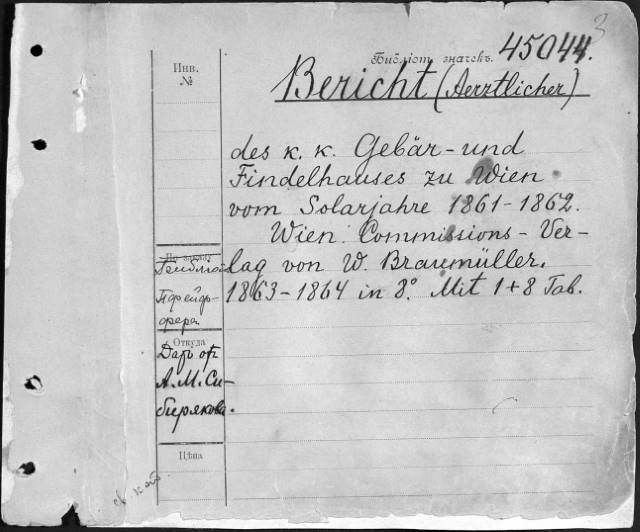 3
Библіот. значекъ. 45044.
Инв.
№
Bericht (Aerztlicher)
des k. k. Gebär- und
Findelhauses zu Wien
vom Solarjahre 1861-1862.
Wien. Commissions-Ver-
lag von W. Braumüller.
1863-1864 in 8° Mit 1+8 Tab.
Пфейф-
фера
Откуда
Даръ от
А.М. Си-
бирякова.
Цѣна